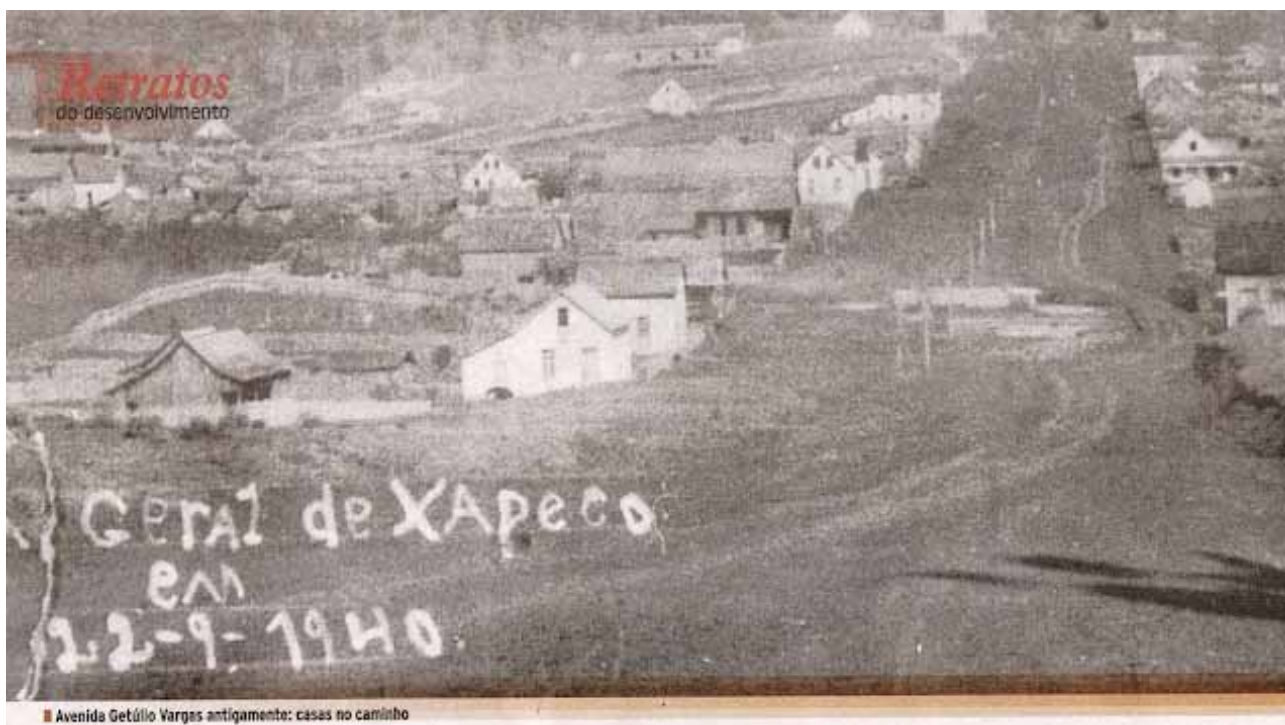 Retratos
do desenvolvimento
Geral de XApeco
em
22-9-1940
Avenida Getúlio Vargas antigamente: casas no caminho